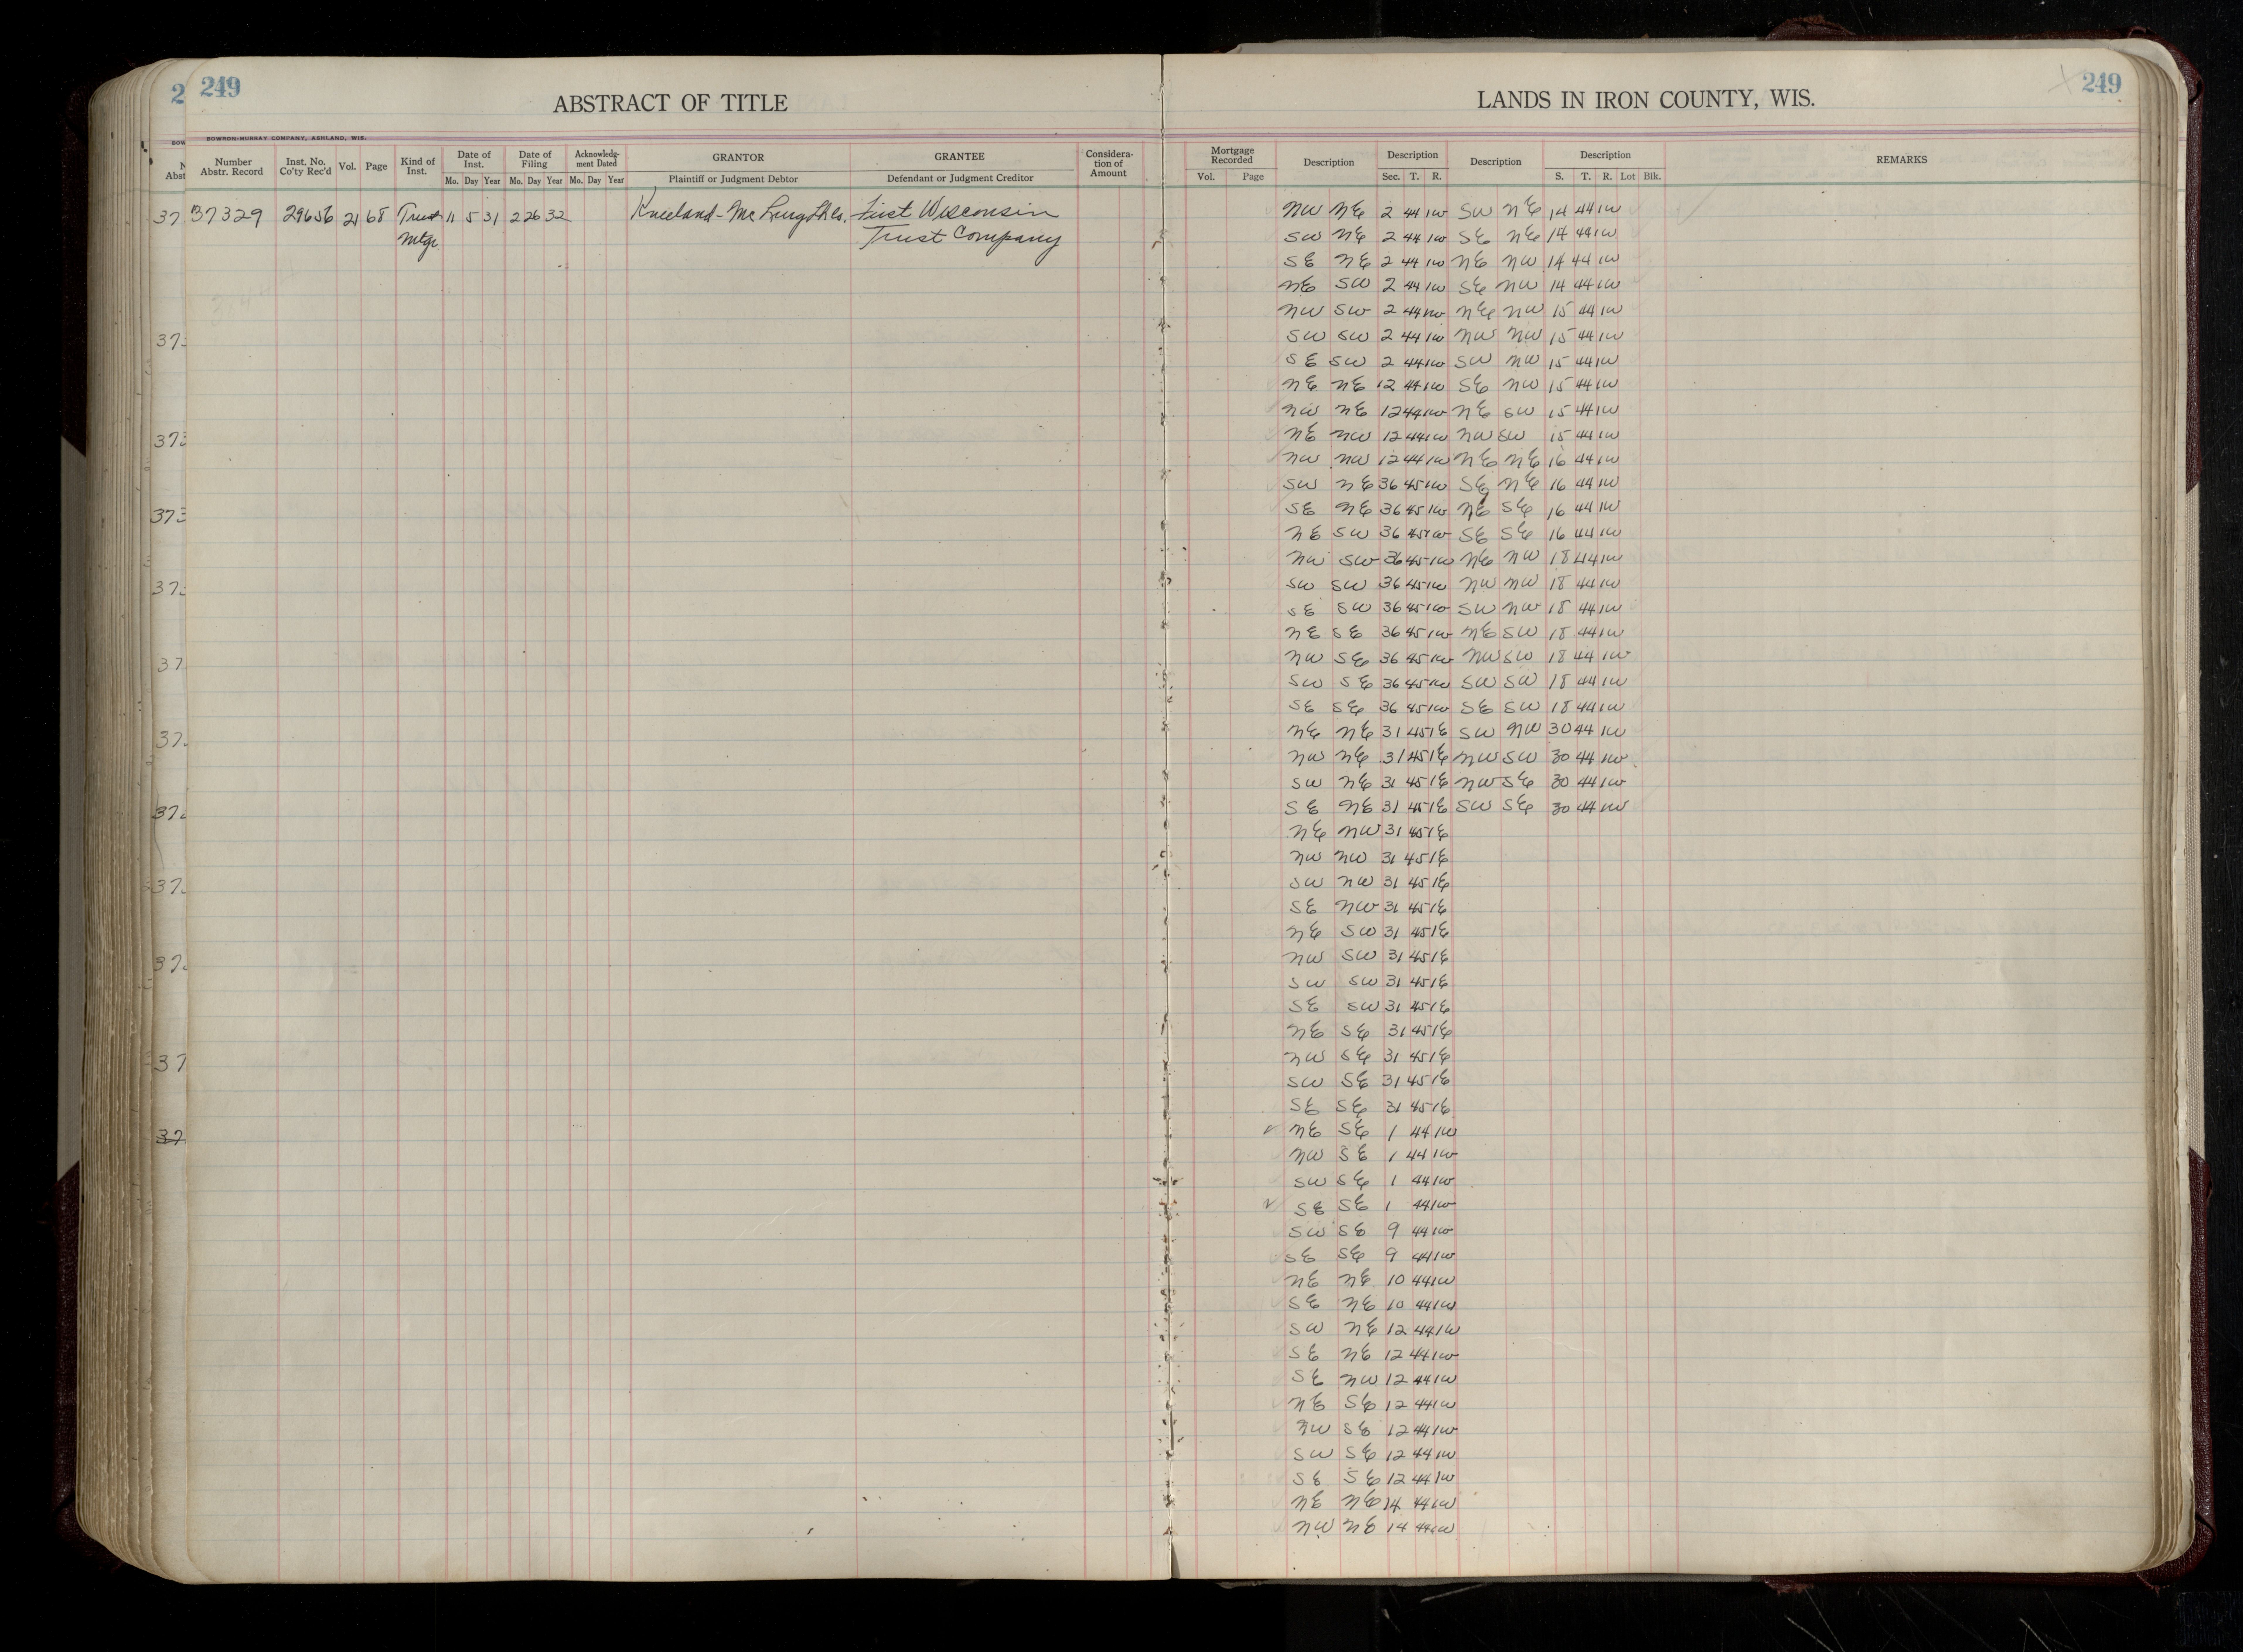 2 249
ABSTRACT OF TITLE
LANDS IN IRON COUNTY, WIS.
249
BOW BOWRON-MURRAY COMPANY, ASHLAND, WIS.
Number Abstr. Record Inst. No. Co'ty Rec'd Vol. Page Kind of Inst. Date of Inst. Date of Filing Acknowledg-ment Dated GRANTOR GRANTEE Considera-tion of Amount Mortgage Recorded Description Description Description Description REMARKS
Mo. Day Year Mo. Day Year Mo. Day Year Plaintiff or Judgment Debtor Defendant or Judgment Creditor Vol. Page Sec. T. R. S. T. R. Lot Blk.
37 37329 29656 21 68 Trust 11 5 31 2 26 32 Kneeland-McLurg Lb Co. First Wisconsin NW NE 2 44 1W SW NE 14 44 1W
Mtge Trust Company SW NE 2 44 1W SE NE 14 44 1W
SE NE 2 44 1W NE NW 14 44 1W
NE SW 2 44 1W SE NW 14 44 1W
NW SW 2 44 1W NE NW 15 44 1W
37 SW SW 2 44 1W NW NW 15 44 1W
SE SW 2 44 1W SW NW 15 44 1W
NE NE 12 44 1W SE NW 15 44 1W
NW NE 12 44 1W NE SW 15 44 1W
373 NE NW 12 44 1W NW SW 15 44 1W
NW NW 12 44 1W NE NE 16 44 1W
SW NE 36 45 1W SE NE 16 44 1W
373 SE NE 36 45 1W NE SE 16 44 1W
NE SW 36 45 1W SE SE 16 44 1W
NW SW 36 45 1W NE NW 18 44 1W
37 SW SW 36 45 1W NW NW 18 44 1W
SE SW 36 45 1W SW NW 18 44 1W
NE SE 36 45 1W NE SW 18 44 1W
37 NW SE 36 45 1W NW SW 18 44 1W
SW SE 36 45 1W SW SW 18 44 1W
SE SE 36 45 1W SE SW 18 44 1W
37 NE NE 31 45 1E SW NW 30 44 1W
NW NE 31 45 1E NW SW 30 44 1W
SW NE 31 45 1E NW SE 30 44 1W
37 SE NE 31 45 1E SW SE 30 44 1W
NE NW 31 45 1E
NW NW 31 45 1E
37 SW NW 31 45 1E
SE NW 31 45 1E
NE SW 31 45 1E
37 NW SW 31 45 1E
SW SW 31 45 1E
SE SW 31 45 1E
NE SE 31 45 1E
37 NW SE 31 45 1E
SW SE 31 45 1E
SE SE 31 45 1E
37 ✓ NE SE 1 44 1W
NW SE 1 44 1W
SW SE 1 44 1W
✓ SE SE 1 44 1W
SW SE 9 44 1W
SE SE 9 44 1W
NE NE 10 44 1W
SE NE 10 44 1W
SW NE 12 44 1W
SE NE 12 44 1W
SE NW 12 44 1W
NE SE 12 44 1W
NW SE 12 44 1W
SW SE 12 44 1W
SE SE 12 44 1W
NE NE 14 44 1W
NW NE 14 44 1W